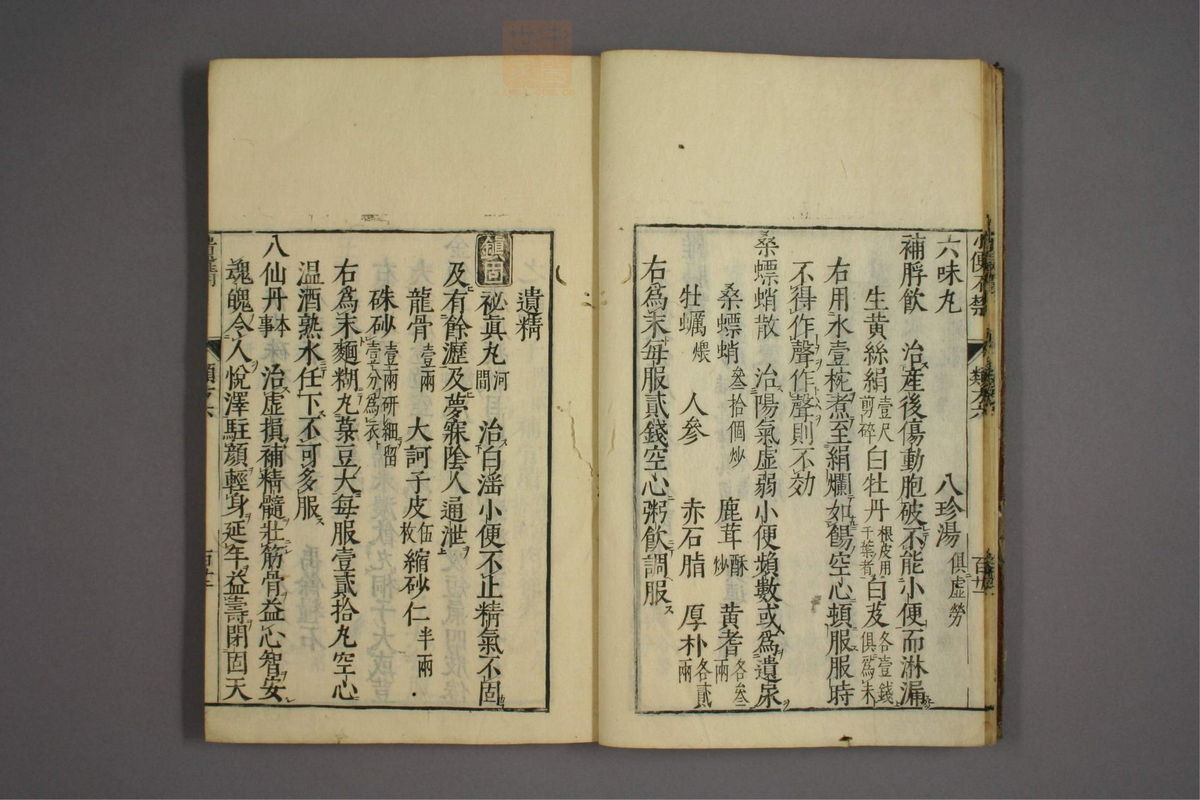 六味丸 八珍湯 俱虛勞
補脬飲 治產後傷動胞破不能小便而淋漏
生黃絲絹 壹尺剪碎 白牡丹 根皮用千葉者 白芨 各壹錢俱為末
右用水壹椀煮至絹爛如餳空心頓服服時
不得作聲作聲則不効
桑螵蛸散 治陽氣虛弱小便頻數或為遺尿
桑螵蛸 叁拾個炒 鹿茸 酥炒 黃耆 各叁兩
牡蠣 煨 人參 赤石脂 厚朴 各貳兩
右為末每服貳錢空心粥飲調服
遺精
鎮固 祕真丸 河間 治白淫小便不止精氣不固
及有餘瀝及夢寐陰人通泄
龍骨 壹兩 大訶子皮 伍枚 縮砂仁 半兩
硃砂 壹兩研細留壹分為衣
右為末麵糊丸菉豆大每服壹貳拾丸空心
温酒熟水任下不可多服
八仙丹 本事 治虛損補精髓壯筋骨益心智安
魂魄令人悅澤駐顏輕身延年益壽閉固天